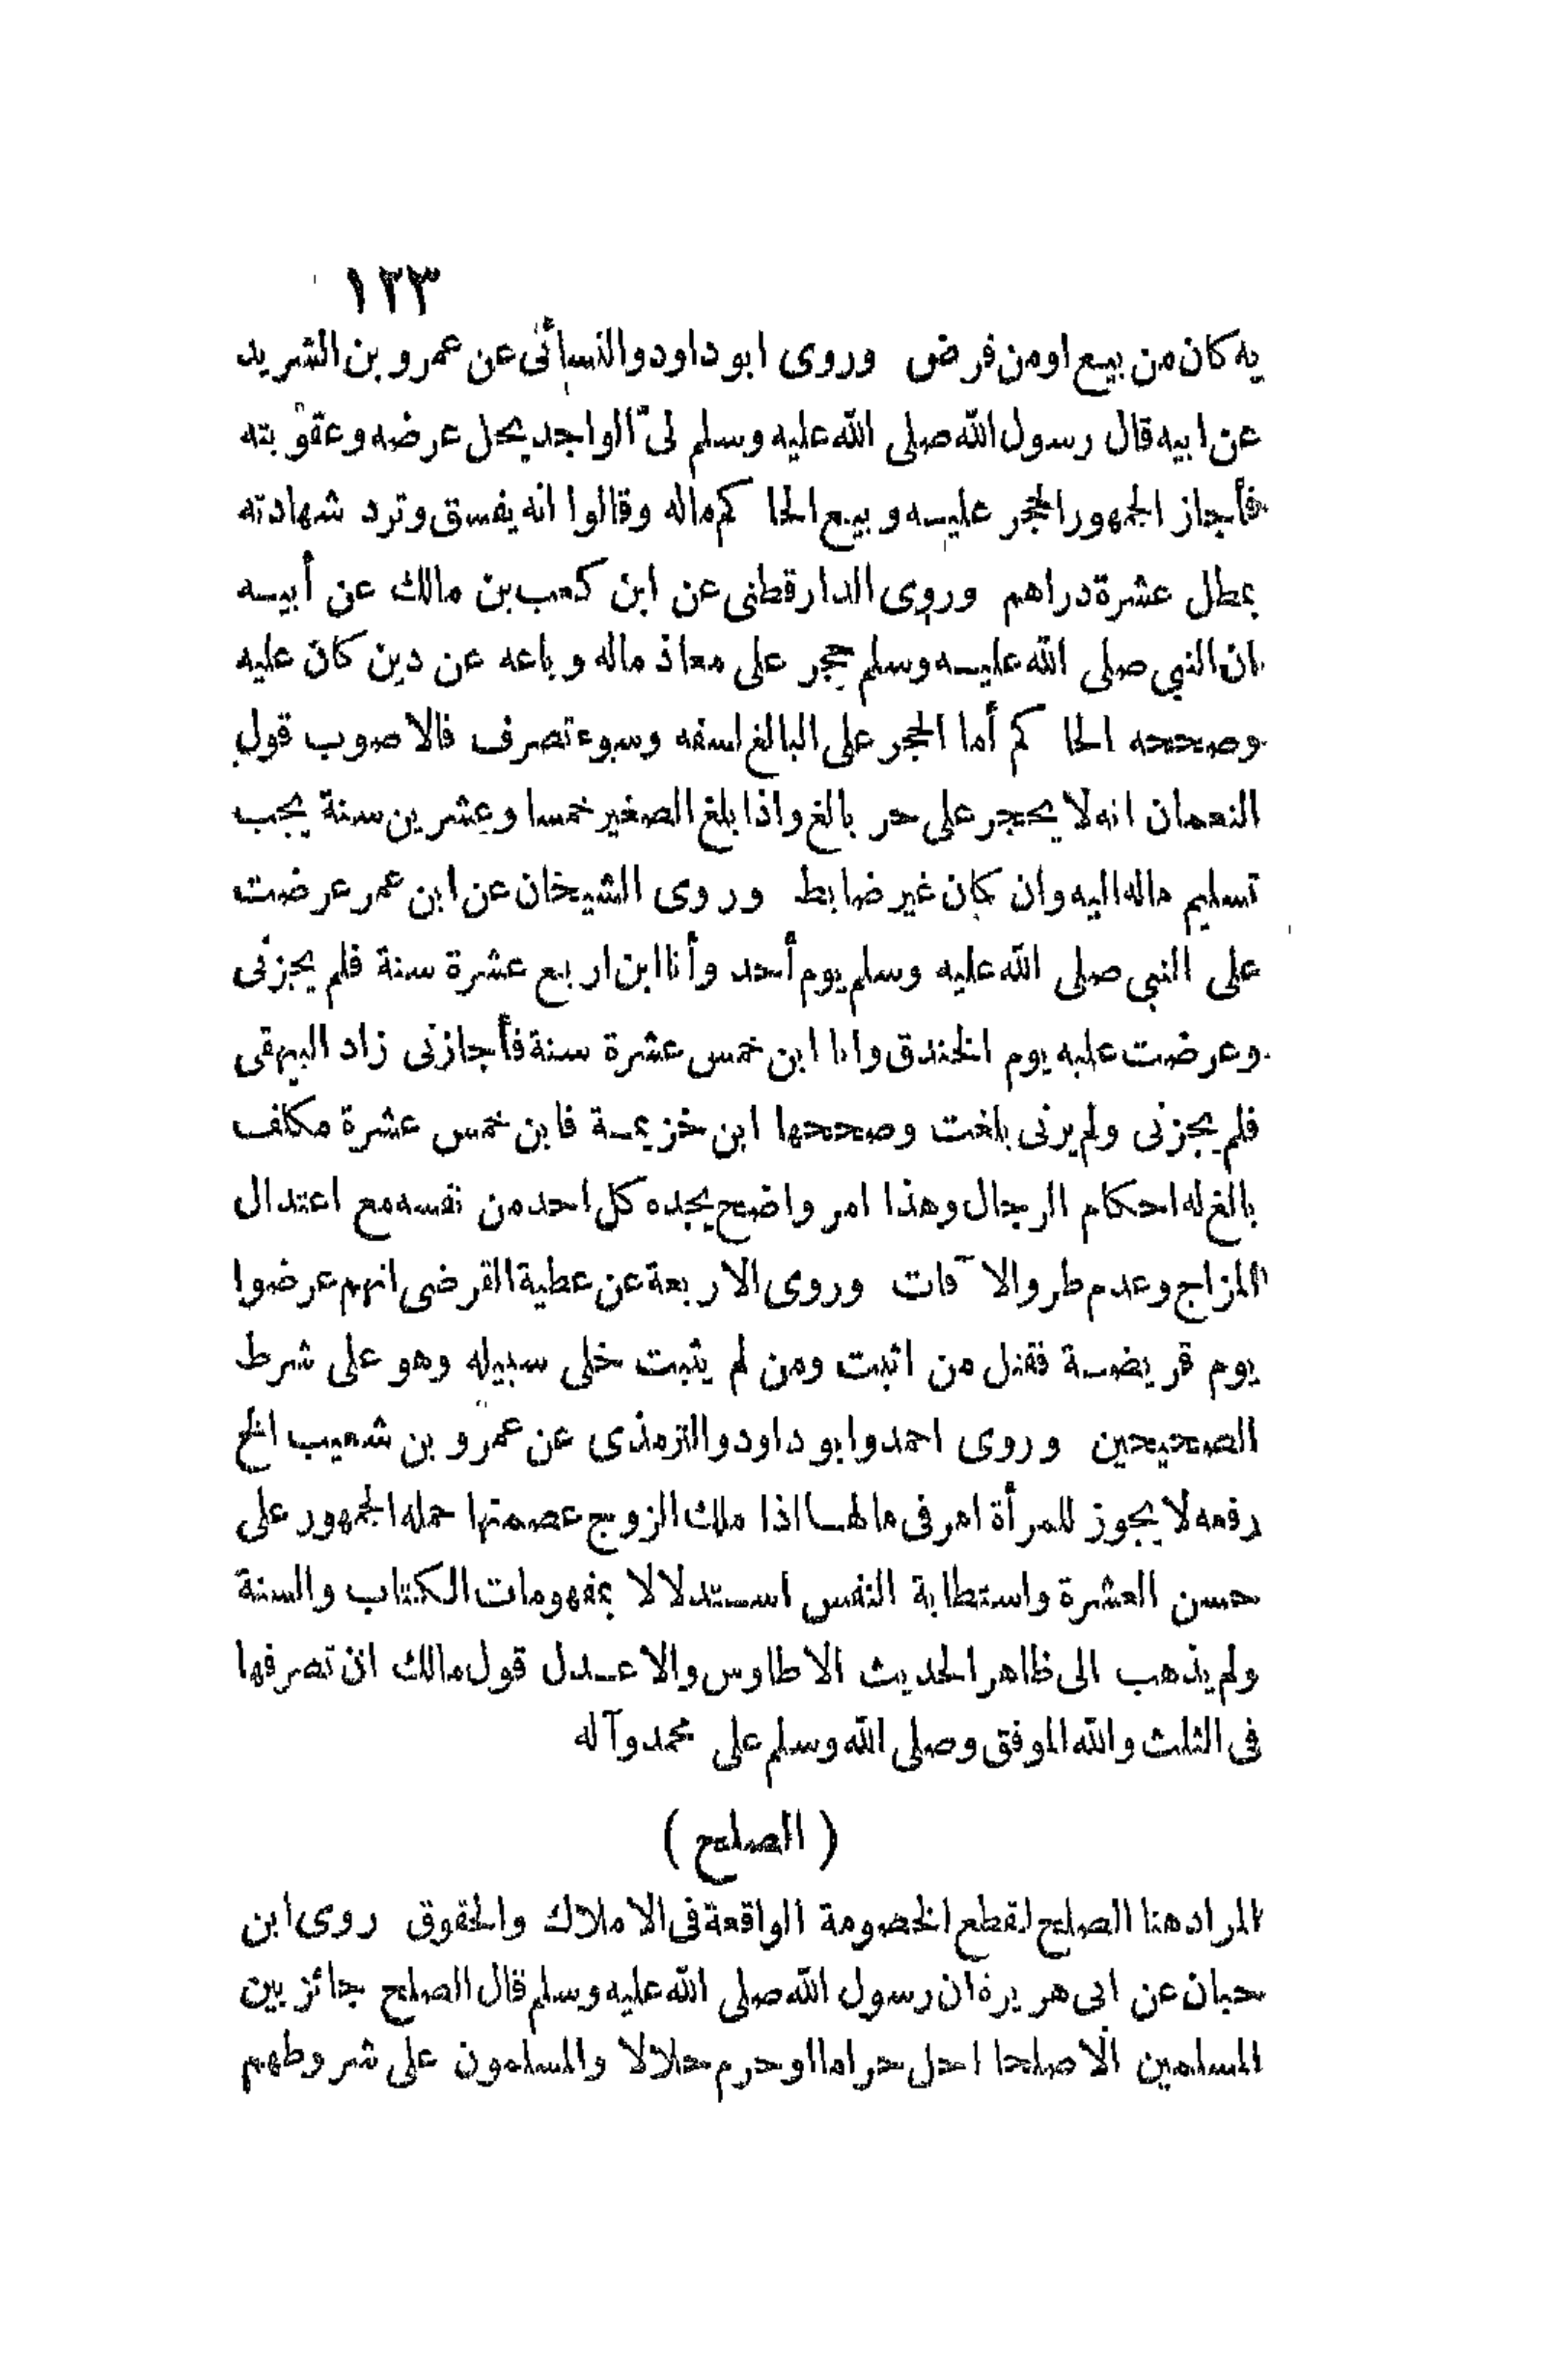 ١٢٣
به كان من بيع او من فرض وروى ابو داود والنسائى عن عمرو بن الشريد
عن ابيه قال رسول الله صلى الله عليه وسلم لىّ الواجد يحل عرضه وعقوبته
فأجاز الجمهور الحجر عليه وبيع الحاكم ماله وقالوا انه يفسق وترد شهادته
بمطل عشرة دراهم وروى الدارقطنى عن ابن كعب بن مالك عن أبيه
ان النبي صلى الله عليه وسلم حجر على معاذ ماله وباعه عن دين كان عليه
وصححه الحاكم أما الحجر على البالغ لسفه وسوء تصرف فالاصوب قول
النعمان انه لا يحجر على حر بالغ واذا بلغ الصغير خمسا وعشرين سنة يجب
تسليم ماله اليه وان كان غير ضابط وروى الشيخان عن ابن عمر عرضت
على النبي صلى الله عليه وسلم يوم أحد وأنا ابن اربع عشرة سنة فلم يجزنى
وعرضت عليه يوم الخندق وانا ابن خمس عشرة سنة فأجازنى زاد البيهقى
فلم يجزنى ولم يرنى بلغت وصححها ابن خزيمة فابن خمس عشرة مكلف
بالغ له احكام الرجال وهذا امر واضح يجده كل احد من نفسه مع اعتدال
المزاج وعدم طرو الآفات وروى الاربعة عن عطية القرضى انهم عرضوا
يوم قريضة فقتل من اثبت ومن لم يثبت خلى سبيله وهو على شرط
الصحيحين وروى احمد وابو داود والترمذى عن عمرو بن شعيب الخ
رفعه لا يجوز للمرأة امر فى مالها اذا ملك الزوج عصمتها حمله الجمهور على
حسن العشرة واستطابة النفس استدلالا بمفهومات الكتاب والسنة
ولم يذهب الى ظاهر الحديث الا طاوس والاعدل قول مالك ان تصرفها
فى الثلث والله الموفق وصلى الله وسلم على محمد وآله
( الصلح )
المراد هنا الصلح لقطع الخصومة الواقعة فى الاملاك والحقوق روى ابن
حبان عن ابى هريرة ان رسول الله صلى الله عليه وسلم قال الصلح جائز بين
المسلمين الّا صلحا احل حراما او حرم حلالا والمسلمون على شروطهم